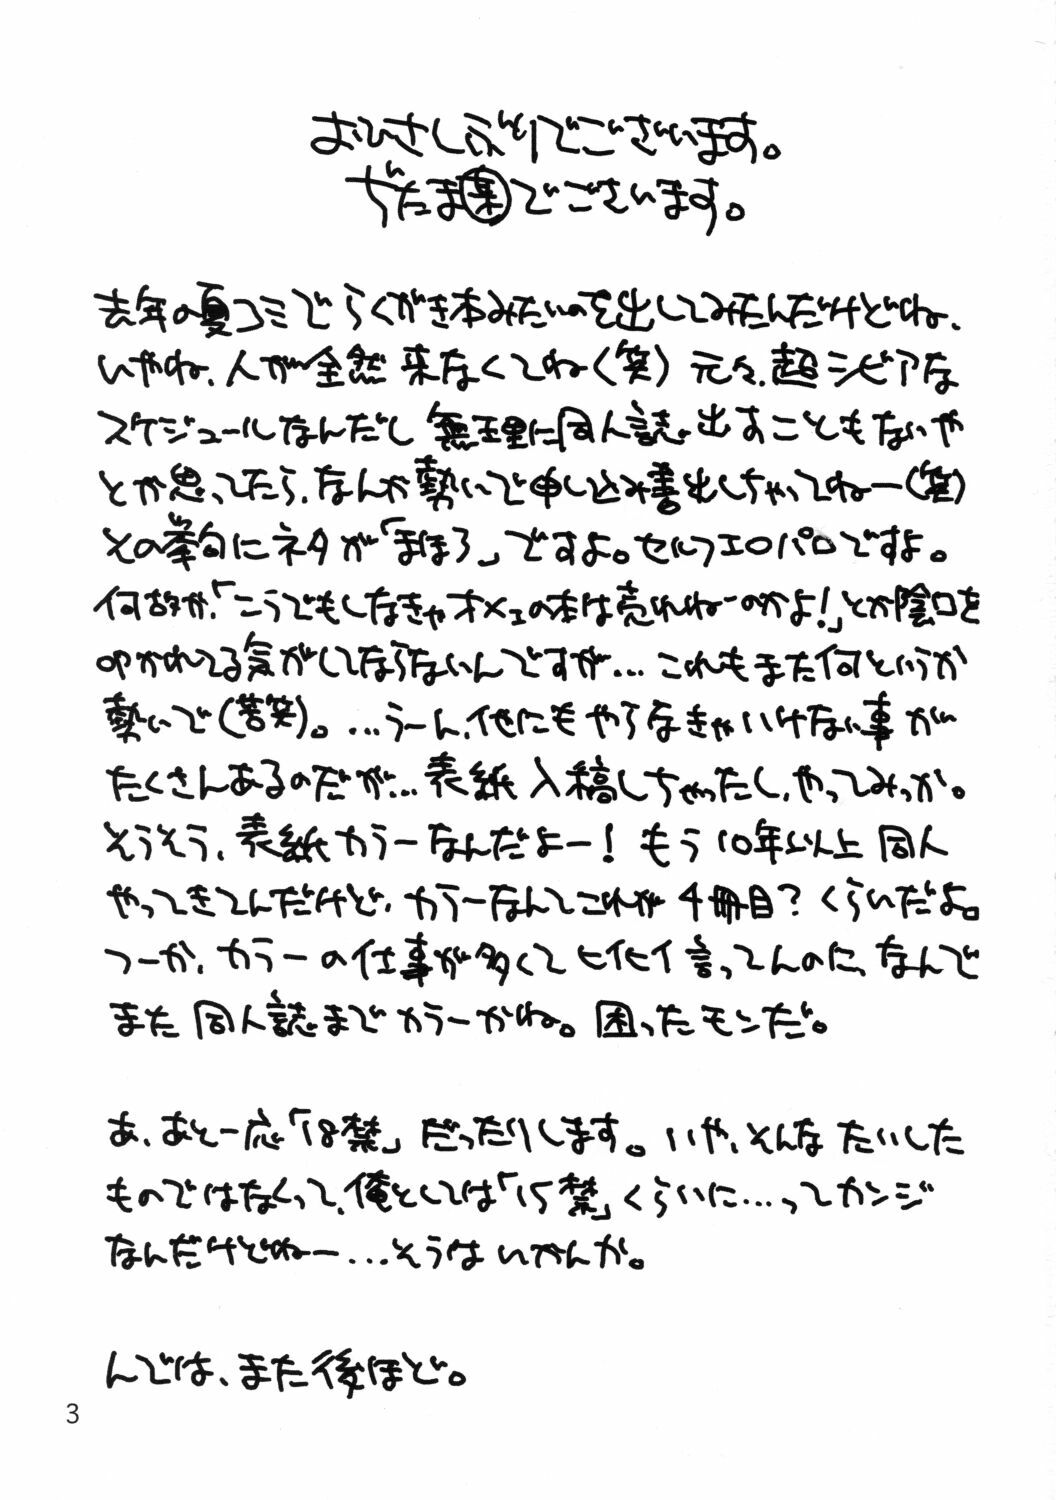 おひさしぶりでございます。
ぢたま某でございます。
去年の夏コミでらくがき本みたいのを出してみたんだけどね、
いやね、人が全然来なくてね(笑)元々、超シビアな
スケジュールなんだし無理に同人誌出すこともないや
とか思ってたら、なんか勢いで申し込み書出しちゃってねー(笑)
その挙句にネタが「まほろ」ですよ。セルフエロパロですよ。
何故か、「こうでもしなきゃオメェの本は売れねーのかよ!」とか陰口を
叩かれてる気がしてならないんですが…これもまた何というか
勢いで(苦笑)。…うーん、他にもやらなきゃいけない事が
たくさんあるのだが…表紙入稿しちゃったし、やってみっか。
そうそう、表紙カラーなんだよー!もう10年以上同人
やってきてんだけど、カラーなんてこれが4冊目?くらいだよ。
つーか、カラーの仕事が多くてヒイヒイ言ってんのに、なんで
また同人誌までカラーかね。困ったモンだ。
あ、あと一応「18禁」だったりします。いや、そんなたいした
ものではなくって、俺としては「15禁」くらいに…ってカンジ
なんだけどねー…そうはいかんか。
んでは、また後ほど。
3